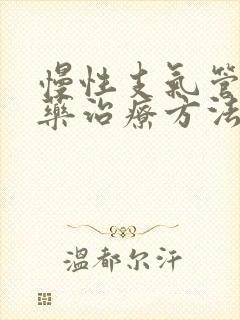 慢性支氣管
藥治療方法
温都尔汗